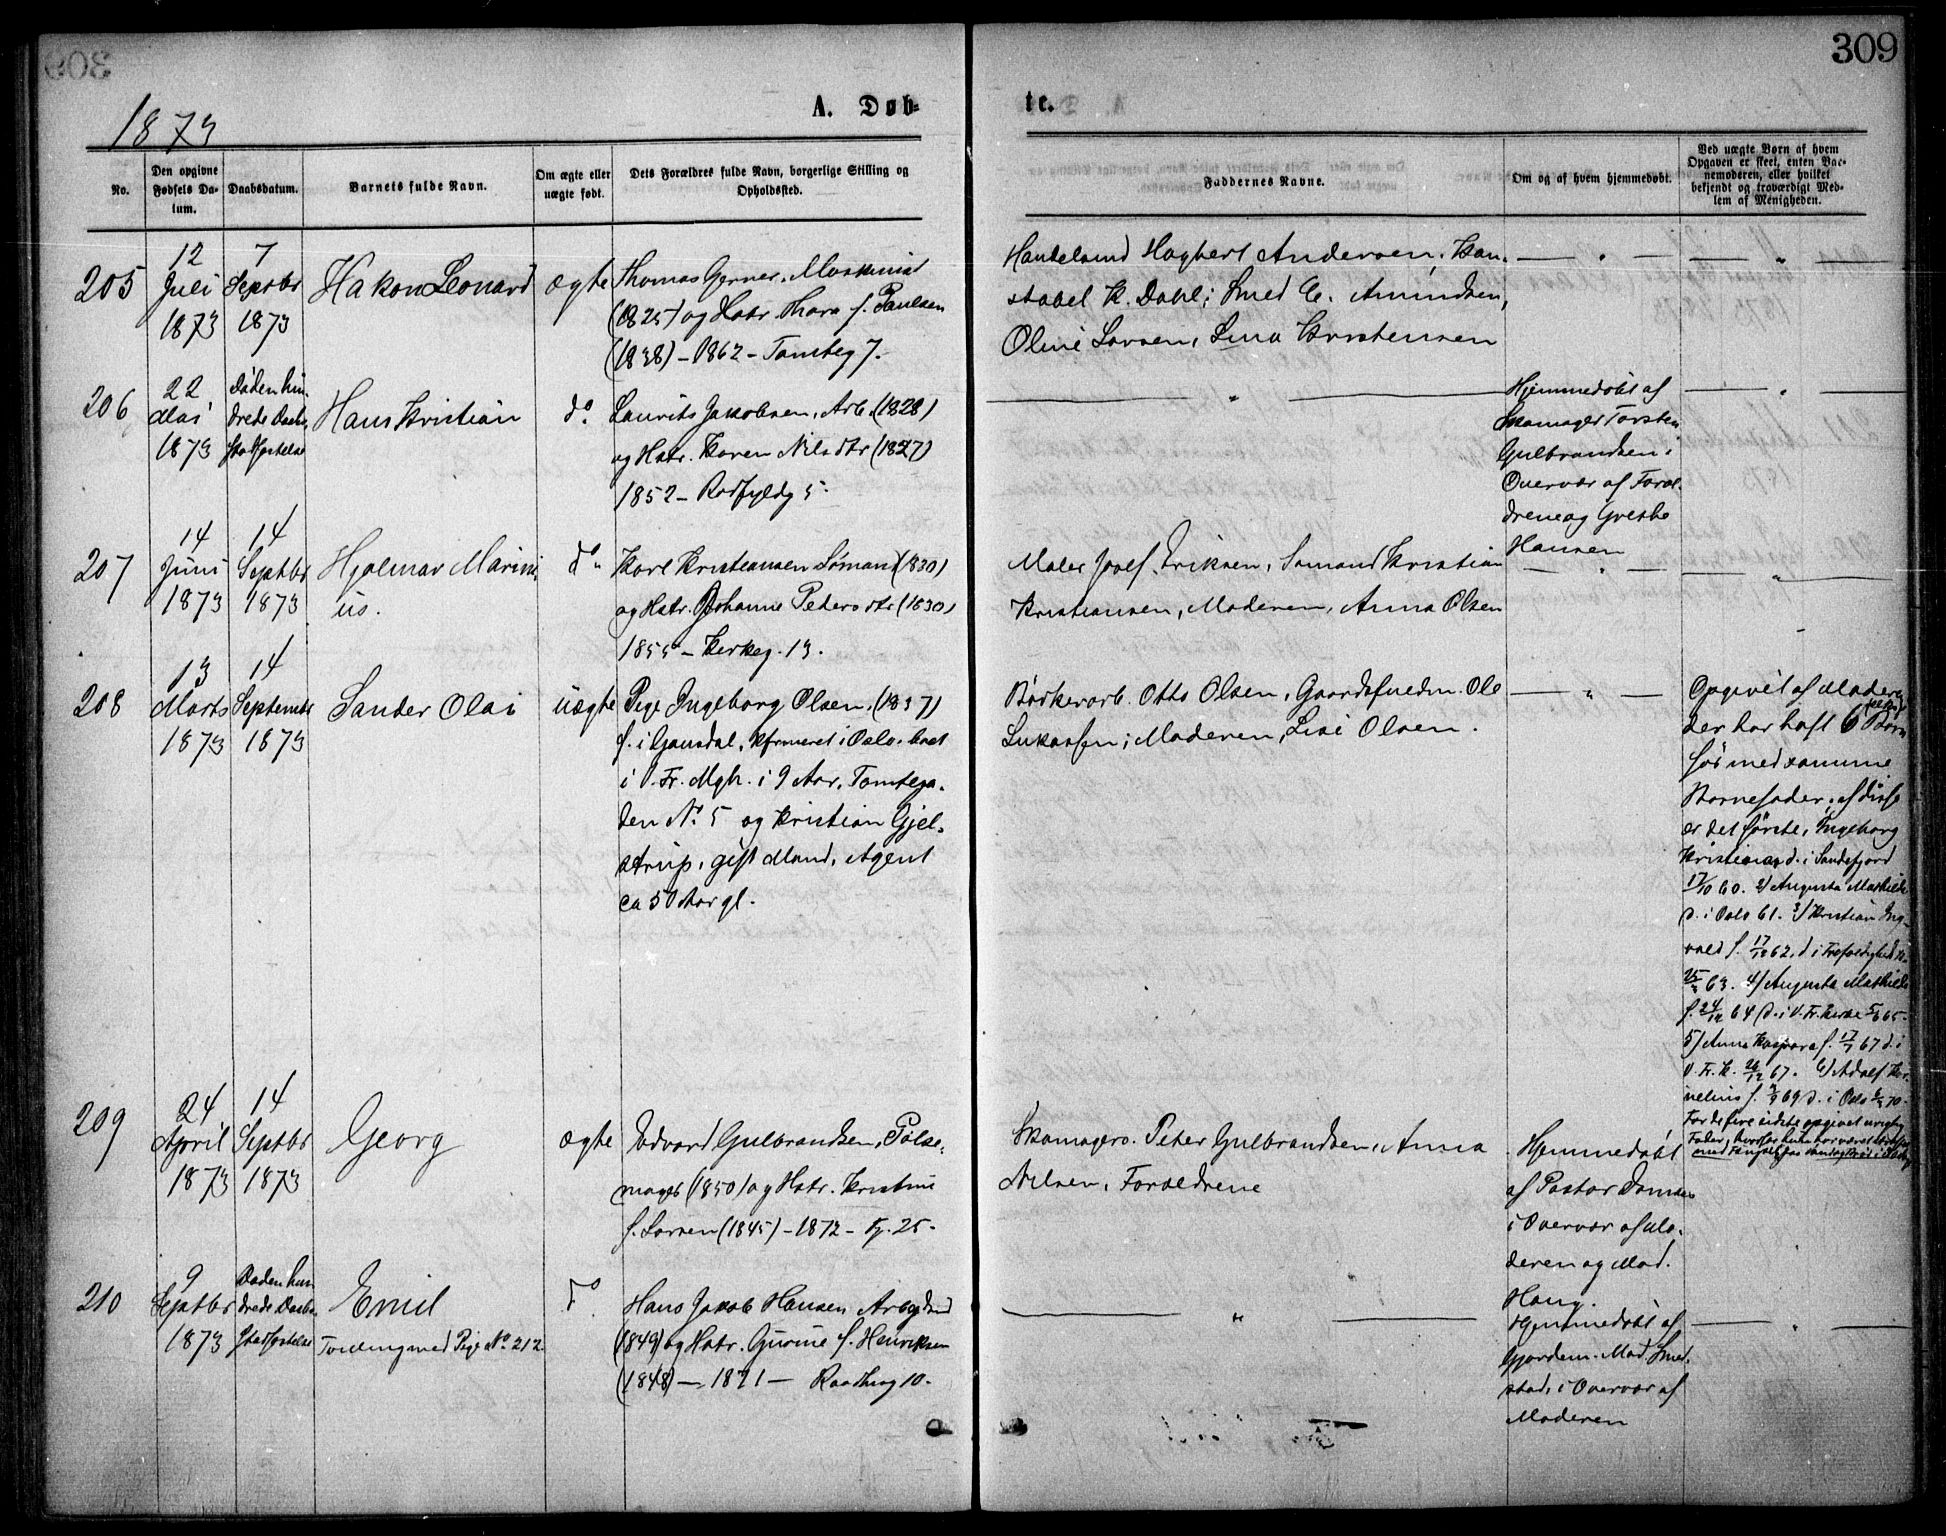 309
1873
A. Døb-
te.
No.
Den opgivne
Fødsels Da-
tum.
Daabsdatum.
Barnets fulde Navn.
Om ægte eller
uægte født.
Dets Forældres fulde Navn, borgerlige Stilling og
Opholdssted.
Faddernes Navne.
Om og af hvem hjemmedøbt.
Ved uægte Børn af hvem
Opgaven er skeet, enten Bar-
nemoderen, eller hvilket
bekjendt og troværdigt Med-
lem af Menigheden.
205
12
Juli
1873
7
Septbr
1873
Hakon Leonard
ægte
Thomas Gerner, Maskinist
(1825) og Hstr. Thora f. Paulsen
(1838) – 1862 – Tomteg 7.
Handelsmd Hagbert Andersen, Kon-
stabel K. Dahl; Smed C. Amundsen,
Oline Larsen, Lina Kristensen
206
22
Mai
1873
Døden hin-
drede Daabs
Stadfæstelse
Hans Kristian
do.
Laurits Jakobsen, Arb. (1828)
og Hstr. Karen Nilsdtr (1827)
1852 – Rødfyldg 5.
Hjemmedøbt af
Skomager Torsten
Gulbrandsen i
Overvær af Foræl-
drene og Grethe
Hansen
207
14
Juni
1873
14
Septbr
1873
Hjalmar Marini-
us.
do.
Karl Kristiansen Sømand (1830)
og Hstr. Johanne Pedersdtr (1830)
1855 – Kirkeg. 13.
Maler Josef Eriksen, Sømand Kristian
Kristiansen, Moderen, Anna Olsen
208
13
Marts
1873
14
Septembr
1873
Sander Olai
uægte
Pige Ingeborg Olsen, (1837)
f. i Gausdal, kfrmeret i Oslo. boet
i V. Fr. Mgh. i 9 Aar, Tomtega-
den No. 5 og Kristian Gjel-
strup, gift Mand, Agent
ca 50 Aar gl.
Børkerarb. Otto Olsen, Gaardsfuldm. Ole
Lukassen; Moderen, Lise Olsen.
Opgivet af Moderen
der har haft 6 Børn
før med samme
Barnefader; af disse
er det første, Ingeborg
Kristiana d. i Sandefjord
17/10 60. 2) Augusta Mathilde
d. i Oslo 61. 3) Kristian Ing-
vald f. 17/12 62, d i Trefoldighed K.
25/3 63. 4) Augusta Mathilde
f. 24/12 64 d. i V. Fr. Kirke 5/6 65.
5) Anna Kaspara f. 17/7 67 d. i
V. Fr. K. 26/12 67. 6) Adolf Kor-
nelius f. 69 d. i Oslo 70.
For de fire sidste opgivet urigtig
Fader, hvorfor hun har været straffet
med Fængsel
209
24
April
1873
14
Septbr
1873
Georg
ægte
Edvard Gulbrandsen, Pølse-
mager (1850) og Hstr. Kristine
f. Larsen (1845) – 1872 – Tg. 25.
Skomagers. Peter Gulbrandsen, Anna
Nilsen, Forældrene
Hjemmedøbt
af Pastor Domsen
i Overvær af Mo-
deren og Mad.
Haug.
210
9
Septbr
1873
Døden hin-
drede Daabs
Stadfæstelse
Emil
Tvilling med Pige No. 212.
do.
Hans Jakob Hansen Arbdsmd
(1849) og Hstr. Gurine f. Henriksen
(1848) – 1871 – Raadhusg 10.
Hjemmedøbt af
Gjordem. Mad. Smed-
stad, i Overvær af
Moderen